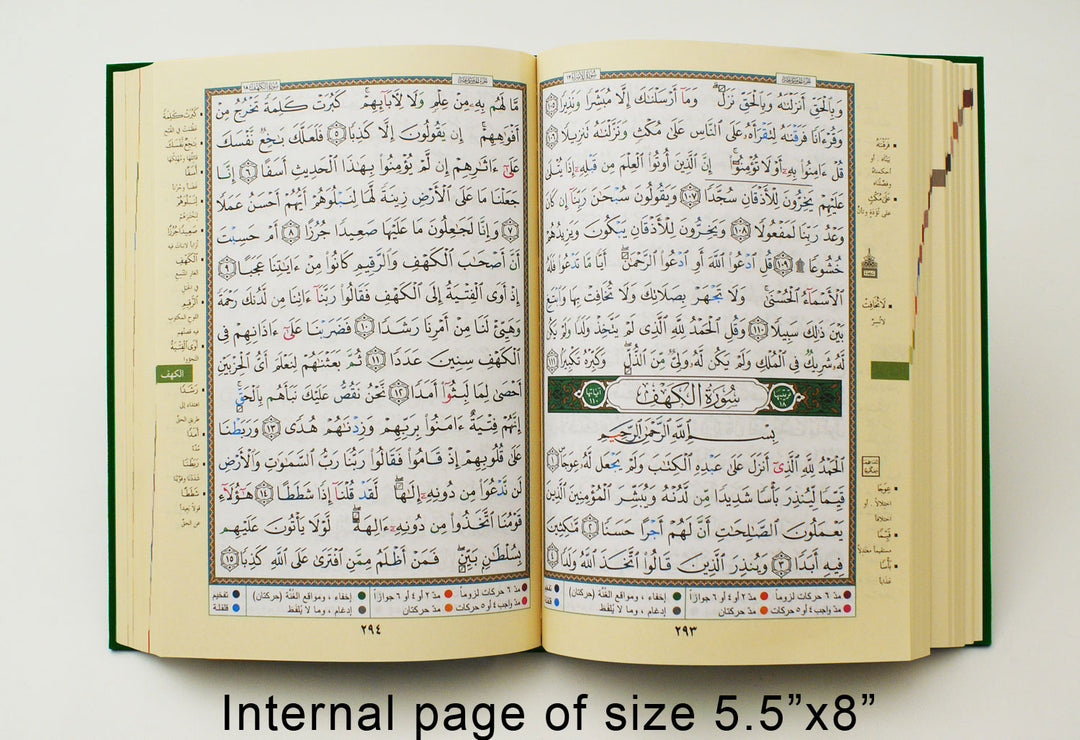 سُورَةُ الإِسْرَاء ١٧
وَبِالْحَقِّ أَنزَلْنَٰهُ وَبِالْحَقِّ نَزَلَ ۗ وَمَا أَرْسَلْنَٰكَ إِلَّا مُبَشِّرًا وَنَذِيرًا ١٠٥
وَقُرْءَانًا فَرَقْنَٰهُ لِتَقْرَأَهُۥ عَلَى النَّاسِ عَلَىٰ مُكْثٍ وَنَزَّلْنَٰهُ تَنزِيلًا ١٠٦
قُلْ ءَامِنُوا بِهِۦٓ أَوْ لَا تُؤْمِنُوٓا ۚ إِنَّ الَّذِينَ أُوتُوا الْعِلْمَ مِن قَبْلِهِۦٓ إِذَا يُتْلَىٰ
عَلَيْهِمْ يَخِرُّونَ لِلْأَذْقَانِ سُجَّدًا ١٠٧ وَيَقُولُونَ سُبْحَٰنَ رَبِّنَآ إِن كَانَ
وَعْدُ رَبِّنَا لَمَفْعُولًا ١٠٨ وَيَخِرُّونَ لِلْأَذْقَانِ يَبْكُونَ وَيَزِيدُهُمْ
خُشُوعًا ۩ ١٠٩ قُلِ ادْعُوا اللَّهَ أَوِ ادْعُوا الرَّحْمَٰنَ ۖ أَيًّا مَّا تَدْعُوا فَلَهُ
الْأَسْمَآءُ الْحُسْنَىٰ ۚ وَلَا تَجْهَرْ بِصَلَاتِكَ وَلَا تُخَافِتْ بِهَا وَابْتَغِ
بَيْنَ ذَٰلِكَ سَبِيلًا ١١٠ وَقُلِ الْحَمْدُ لِلَّهِ الَّذِي لَمْ يَتَّخِذْ وَلَدًا وَلَمْ يَكُن
لَّهُۥ شَرِيكٌ فِي الْمُلْكِ وَلَمْ يَكُن لَّهُۥ وَلِيٌّ مِّنَ الذُّلِّ ۖ وَكَبِّرْهُ تَكْبِيرًا ١١١
ترتيبها ١٨ سُورَةُ الْكَهْفِ آياتها ١١٠
بِسْمِ اللَّهِ الرَّحْمَٰنِ الرَّحِيمِ
الْحَمْدُ لِلَّهِ الَّذِيٓ أَنزَلَ عَلَىٰ عَبْدِهِ الْكِتَٰبَ وَلَمْ يَجْعَل لَّهُۥ عِوَجًا ١
قَيِّمًا لِّيُنذِرَ بَأْسًا شَدِيدًا مِّن لَّدُنْهُ وَيُبَشِّرَ الْمُؤْمِنِينَ الَّذِينَ
يَعْمَلُونَ الصَّٰلِحَٰتِ أَنَّ لَهُمْ أَجْرًا حَسَنًا ٢ مَّٰكِثِينَ
فِيهِ أَبَدًا ٣ وَيُنذِرَ الَّذِينَ قَالُوا اتَّخَذَ اللَّهُ وَلَدًا ٤
فَرَقْنَٰهُ
عَلَىٰ مُكْثٍ
لَا تُخَافِتْ
لا تُسِرّ
عِوَجًا
قَيِّمًا
بَأْسًا
عذابا
مدّ ٦ حركات لزوماً مدّ ٢ أو ٤ أو ٦ جوازاً إخفاء، ومواقع الغُنّة (حركتان)
مدّ واجب ٤ أو ٥ حركات مدّ حركتان إدغام، وما لا يُلفَظ
٢٩٣
سُورَةُ الكَهْف ١٨
مَّا لَهُم بِهِۦ مِنْ عِلْمٍ وَلَا لِءَابَآئِهِمْ ۚ كَبُرَتْ كَلِمَةً تَخْرُجُ مِنْ
أَفْوَٰهِهِمْ ۚ إِن يَقُولُونَ إِلَّا كَذِبًا ٥ فَلَعَلَّكَ بَٰخِعٌ نَّفْسَكَ
عَلَىٰٓ ءَاثَٰرِهِمْ إِن لَّمْ يُؤْمِنُوا بِهَٰذَا الْحَدِيثِ أَسَفًا ٦ إِنَّا
جَعَلْنَا مَا عَلَى الْأَرْضِ زِينَةً لَّهَا لِنَبْلُوَهُمْ أَيُّهُمْ أَحْسَنُ عَمَلًا
٧ وَإِنَّا لَجَٰعِلُونَ مَا عَلَيْهَا صَعِيدًا جُرُزًا ٨ أَمْ حَسِبْتَ
أَنَّ أَصْحَٰبَ الْكَهْفِ وَالرَّقِيمِ كَانُوا مِنْ ءَايَٰتِنَا عَجَبًا ٩
إِذْ أَوَى الْفِتْيَةُ إِلَى الْكَهْفِ فَقَالُوا رَبَّنَآ ءَاتِنَا مِن لَّدُنكَ رَحْمَةً
وَهَيِّئْ لَنَا مِنْ أَمْرِنَا رَشَدًا ١٠ فَضَرَبْنَا عَلَىٰٓ ءَاذَانِهِمْ فِي
الْكَهْفِ سِنِينَ عَدَدًا ١١ ثُمَّ بَعَثْنَٰهُمْ لِنَعْلَمَ أَيُّ الْحِزْبَيْنِ
أَحْصَىٰ لِمَا لَبِثُوٓا أَمَدًا ١٢ نَّحْنُ نَقُصُّ عَلَيْكَ نَبَأَهُم بِالْحَقِّ ۚ
إِنَّهُمْ فِتْيَةٌ ءَامَنُوا بِرَبِّهِمْ وَزِدْنَٰهُمْ هُدًى ١٣ وَرَبَطْنَا
عَلَىٰ قُلُوبِهِمْ إِذْ قَامُوا فَقَالُوا رَبُّنَا رَبُّ السَّمَٰوَٰتِ وَالْأَرْضِ
لَن نَّدْعُوَا مِن دُونِهِۦٓ إِلَٰهًا ۖ لَّقَدْ قُلْنَآ إِذًا شَطَطًا ١٤ هَٰٓؤُلَآءِ
قَوْمُنَا اتَّخَذُوا مِن دُونِهِۦٓ ءَالِهَةً ۖ لَّوْلَا يَأْتُونَ عَلَيْهِم
بِسُلْطَٰنٍۭ بَيِّنٍ ۖ فَمَنْ أَظْلَمُ مِمَّنِ افْتَرَىٰ عَلَى اللَّهِ كَذِبًا ١٥
كَبُرَتْ كَلِمَةً
بَٰخِعٌ نَّفْسَكَ
أَسَفًا
لِنَبْلُوَهُمْ
صَعِيدًا جُرُزًا
الْكَهْفِ
الرَّقِيمِ
أَوَى الْفِتْيَةُ
الكهف
رَشَدًا
أَمَدًا
رَبَطْنَا
شَطَطًا
مدّ ٦ حركات لزوماً مدّ ٢ أو ٤ أو ٦ جوازاً إخفاء، ومواقع الغُنّة (حركتان) تفخيم
مدّ واجب ٤ أو ٥ حركات مدّ حركتان إدغام، وما لا يُلفَظ قلقلة
٢٩٤
Internal page of size 5.5”x8”